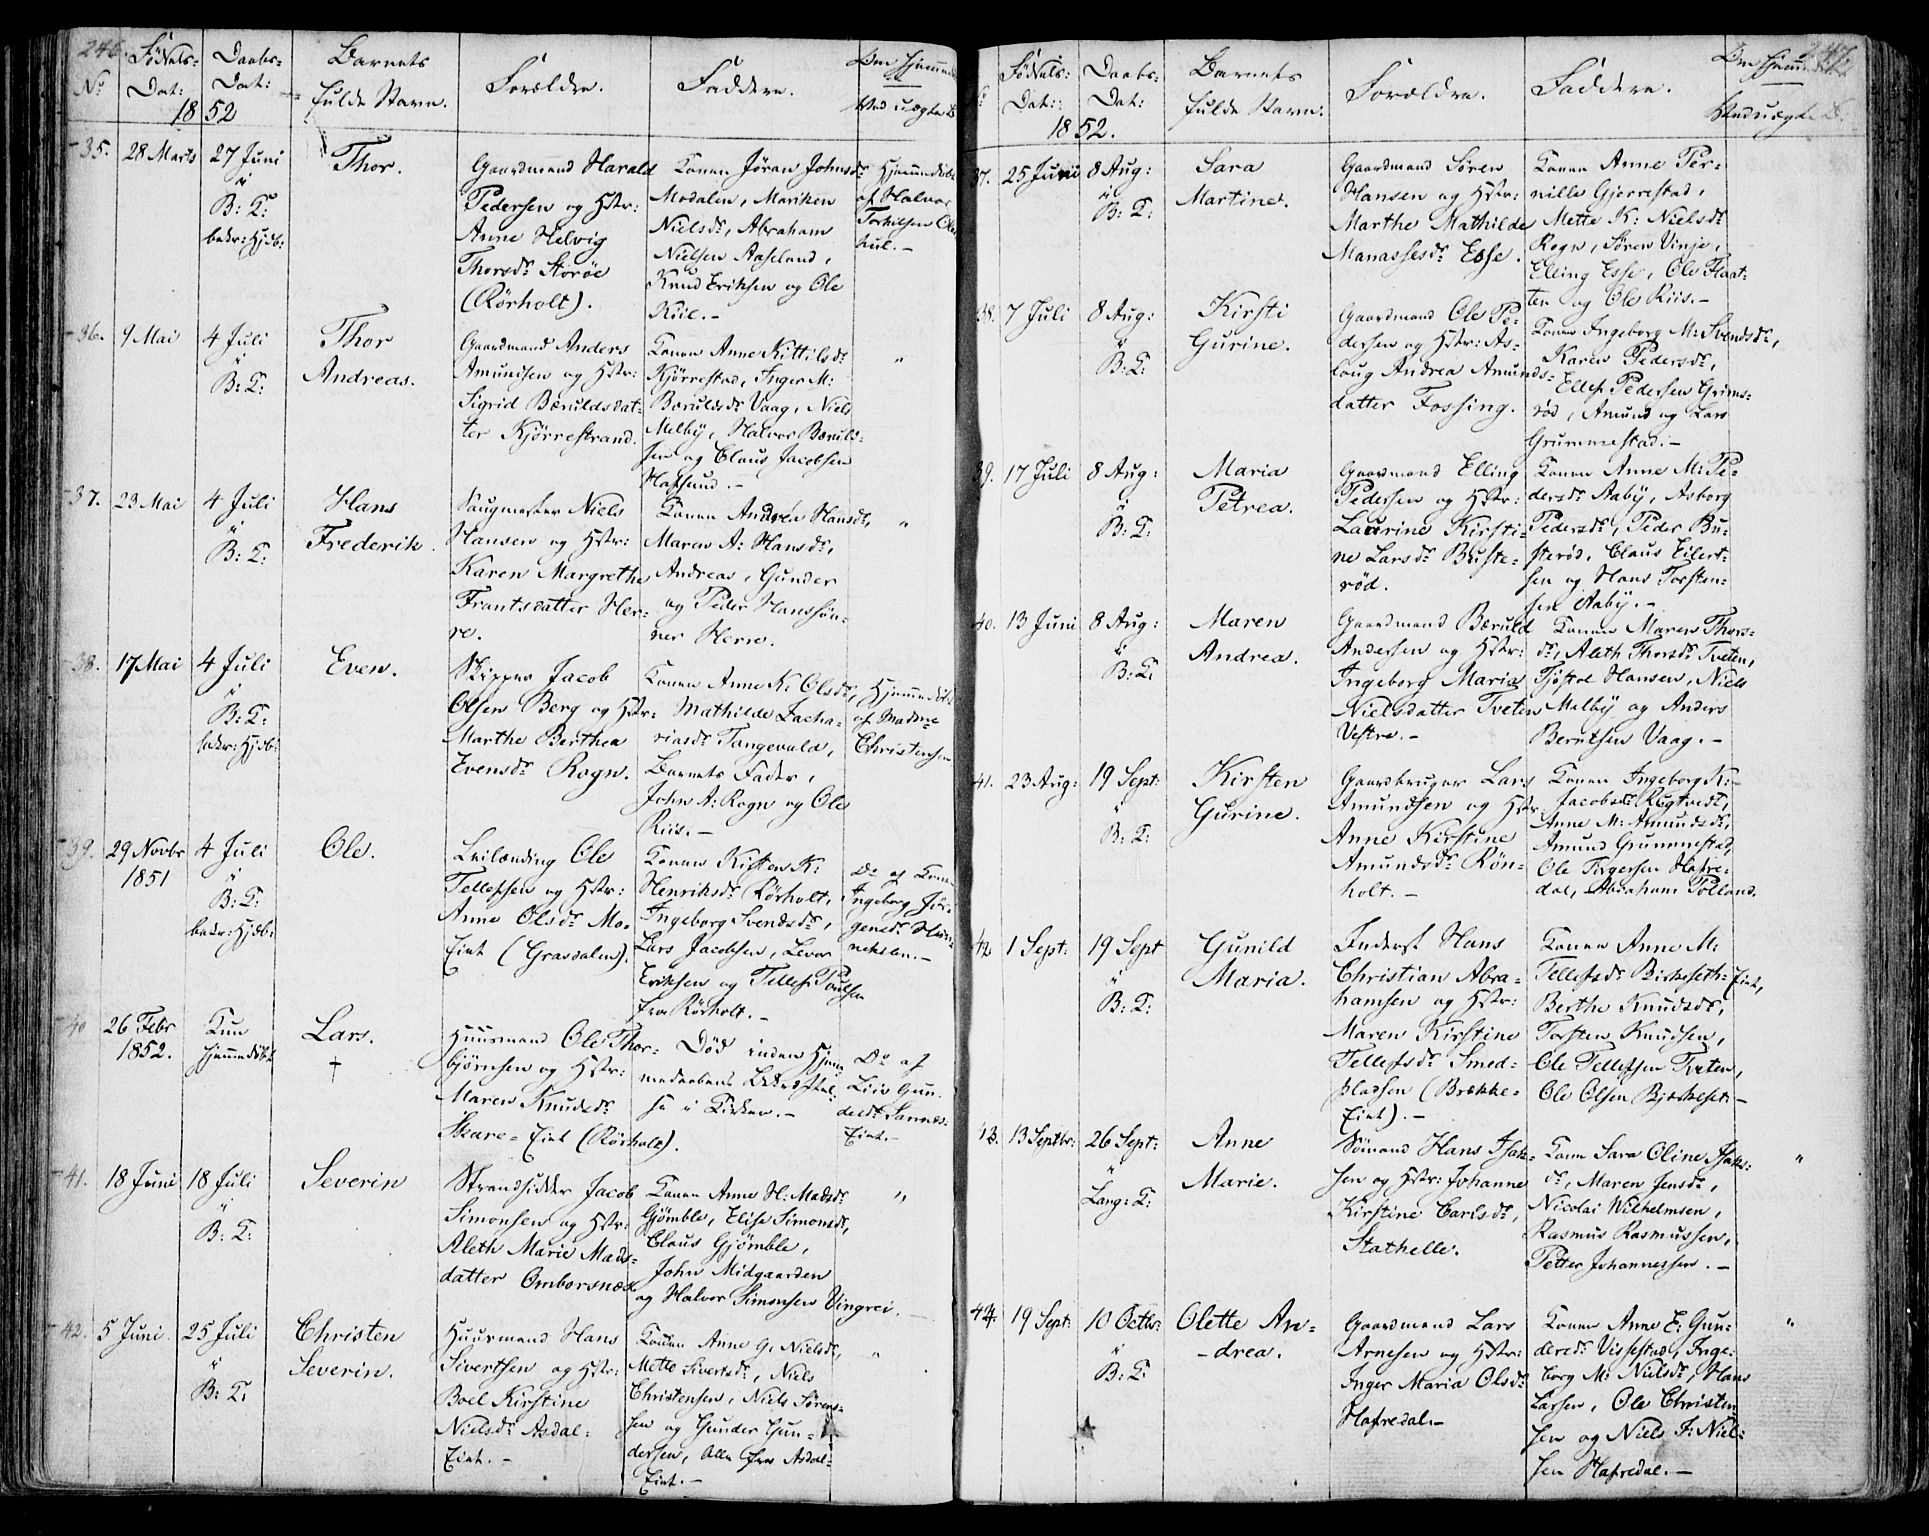 246.
No
Fødsels-
Dat:
Daabs-
Dat:
1852
Barnets
fulde Navn.
Forældre.
Faddere.
Om Hjemmed
Ved uægte B
35.
28 Marts
27 Juni
i
B: K:
bekr: Hjdb:
Thor.
Gaardmand Harald
Pedersen og Hstr:
Anne Helvig
Thorsdr Storöe
(Rörholt).
Konen Jöran Johnsdr
Modalen, Mariken
Nielsdr, Abraham
Nielsen Aaseland,
Knud Eriksen og Ole
Kiil.-
Hjemmedöbt
af Halvor
Torkilsen
36.
9 Mai
4 Juli
i
B: K:
Thor
Andreas.
Gaardmand Anders
Amundsen og Hstr:
Sigrid Bæruldsdat-
ter Kjörrestrand.
Konen Anne Kittilsdr
Kjörrestad, Inger M:
Bæruldsdr Vaag, Niels
Melby, Halvor Bæruld-
sen og Claus Jacobsen
Hafsund.-
"
37.
23 Mai
4 Juli
i
B: K:
Hans
Frederik.
Saugmester Niels
Hansen og Hstr:
Karen Margrethe
Frantsdatter Her-
re.
Konen Andrea Hansdr,
Maren A: Hansdr,
Andreas, Gunder
og Peder Hanssön-
ner Herre.
"
38.
17 Mai
4 Juli
i
B: K:
bekr: Hjdb:
Even.
Skipper Jacob
Olsen Berg og Hstr:
Marthe Berthea
Evensdr Rogn.
Konen Anne K: Olsdr,
Mathilde Zacha-
riasdr Tangevald,
Barnets Fader,
John A: Rogn og Ole
Riis.-
Hjemmedöbt
af Madme
Christensen
39.
29 Novbr
1851
4 Juli
i
B: K:
bekr: Hjdb:
Ole.
Leilænding Ole
Tellefsen og Hstr:
Anne Olsdr Mo-
Eiet (Grasdalen).
Konen Kisten K:
Henriksdr Rörholt,
Ingeborg Svendsdr,
Lars Jacobsen, Levor
Eriksen og Tellef Poulsen
fra Rörholt.-
Do af Konen
Ingeborg Jör-
gensdr
40
26 Febr
1852.
Kun
hjemmedöbt
Lars.
†
Huusmand Ole Thor-
björnsen og Hstr:
Maren Knudsdr
Skare-Eiet (Rörholt).
Död inden Hjem-
medaabens Bekræftel-
se i Kirken.-
Do af
Liv Gun-
dersdr Sannes-
Eiet.-
41.
18 Juni
18 Juli
i
B: K:
Severin
Strandsidder Jacob
Simonsen og Hstr:
Aleth Marie Mads-
datter Omborsnæs
Konen Anne H: Madsdr
Gjömble, Elise Simonsdr,
Claus Gjömble,
John Midgaarden
og Halvor Simonsen Vingrei.
"
42.
5 Juni
25 Juli
i
B: K:
Christen
Severin.
Huusmand Hans
Sivertsen og Hstr:
Boel Kirstine
Nielsdr Asdal-
Eiet.-
Konen Anne G: Nielsdr,
Mette Sivertsdr, Niels
Christensen, Niels Sören-
sen og Gunder Gun-
dersen, Alle fra Asdal-
Eiet.-
"
247
Fødsels-
Dat:
Daabs-
Dat:
1852.
Barnets
fulde Navn.
Forældre.
Faddere.
Om Hjemmed
Ved uægte B.
37.
25 Juni
8 Aug:
i
B: K:
Sara
Martine.
Gaardmand Sören
Hansen og Hstr:
Marthe Mathilde
Manassesdr Esse.
Konen Anne Per-
nille Gjerrestad,
Mette K: Nielsdr
Rogn, Sören Vinje,
Elling Esse, Ole Flaat-
ten og Ole Riis.-
38.
7 Juli
8 Aug:
i
B: K:
Kirsti
Gurine.
Gaardmand Ole Pe-
dersen og Hstr: As-
laug Andrea Amunds-
datter Fossing.
Konen Ingeborg M: Svendsdr,
Karen Pedersdr,
Ellef Pedersen Grims-
röd, Amund og Lars
Grummestad.-
39.
17 Juli
8 Aug:
i
B: K:
Maria
Petrea.
Gaardmand Elling
Pedersen og Hstr:
Laurine Kirsti-
ne Larsdr Buste-
röd.
Konen Anne M: Pe-
dersdr Aaby, Asborg
Pedersdr, Peder Bu-
steröd, Claus Eilert-
sen og Hans Torsten-
sen Aaby.-
40.
13 Juni
8 Aug:
i
B: K:
Maren
Andrea.
Gaardmand Bæruld
Andersen og Hstr:
Ingeborg Maria
Nielsdatter Tveten
Vestre.-
Konen Maren Thors-
dr, Aleth Thorsdr Tveten,
Tjöstol Hansen, Niels
Melby og Anders
Berntsen Vaag.-
41.
23 Aug:
19 Sept:
i
B: K:
Kirsten
Gurine.
Gaardbruger Lars
Amundsen og Hstr:
Anne Kirstine
Amundsdr Rön-
holt.-
Konen Ingeborg K:
Jacobsdr Rugtvedt,
Anne M: Amundsdr,
Amund Grummestad,
Ole Torgersen Hafre-
dal, Abraham Tolland.
42
1 Sept:
19 Sept
i
B: K:
Gunild
Maria.
Inderst Hans
Christian Abra-
hamsen og Hstr:
Maren Kirstine
Tellefsdr Smed-
pladsen (Brække-
Eiet).-
Konen Anne M:
Tellefsdr Birkeseth-Eiet,
Berthe Knudsdr,
Torsten Knudsen,
Ole Tellefsen Tveten,
Ole Olsen Bjerkeset.-
43.
13 Septbr:
26 Sept:
i
Lang: K:
Anne
Marie.
Sömand Hans Isak-
sen og Hstr: Johanne
Kirstine Carlsdr,
Stathelle.
Konen Sara Oline Isaks-
dr, Maren Jensdr,
Nicolai Wilhelmsen,
Rasmus Rasmussen,
Petter Johannessen.-
"
44.
19 Sept:
10 Octbr:
i
B: K:
Olette An-
-drea.
Gaardmand Lars
Arnesen og Hstr:
Inger Maria Olsdr
Hafredal.-
Konen Anne E: Gun-
dersdr Vissestad, Inge-
borg M: Nielsdr, Hans
Larsen, Ole Christen-
sen og Niels J: Niel-
sen Hafredal.-
"